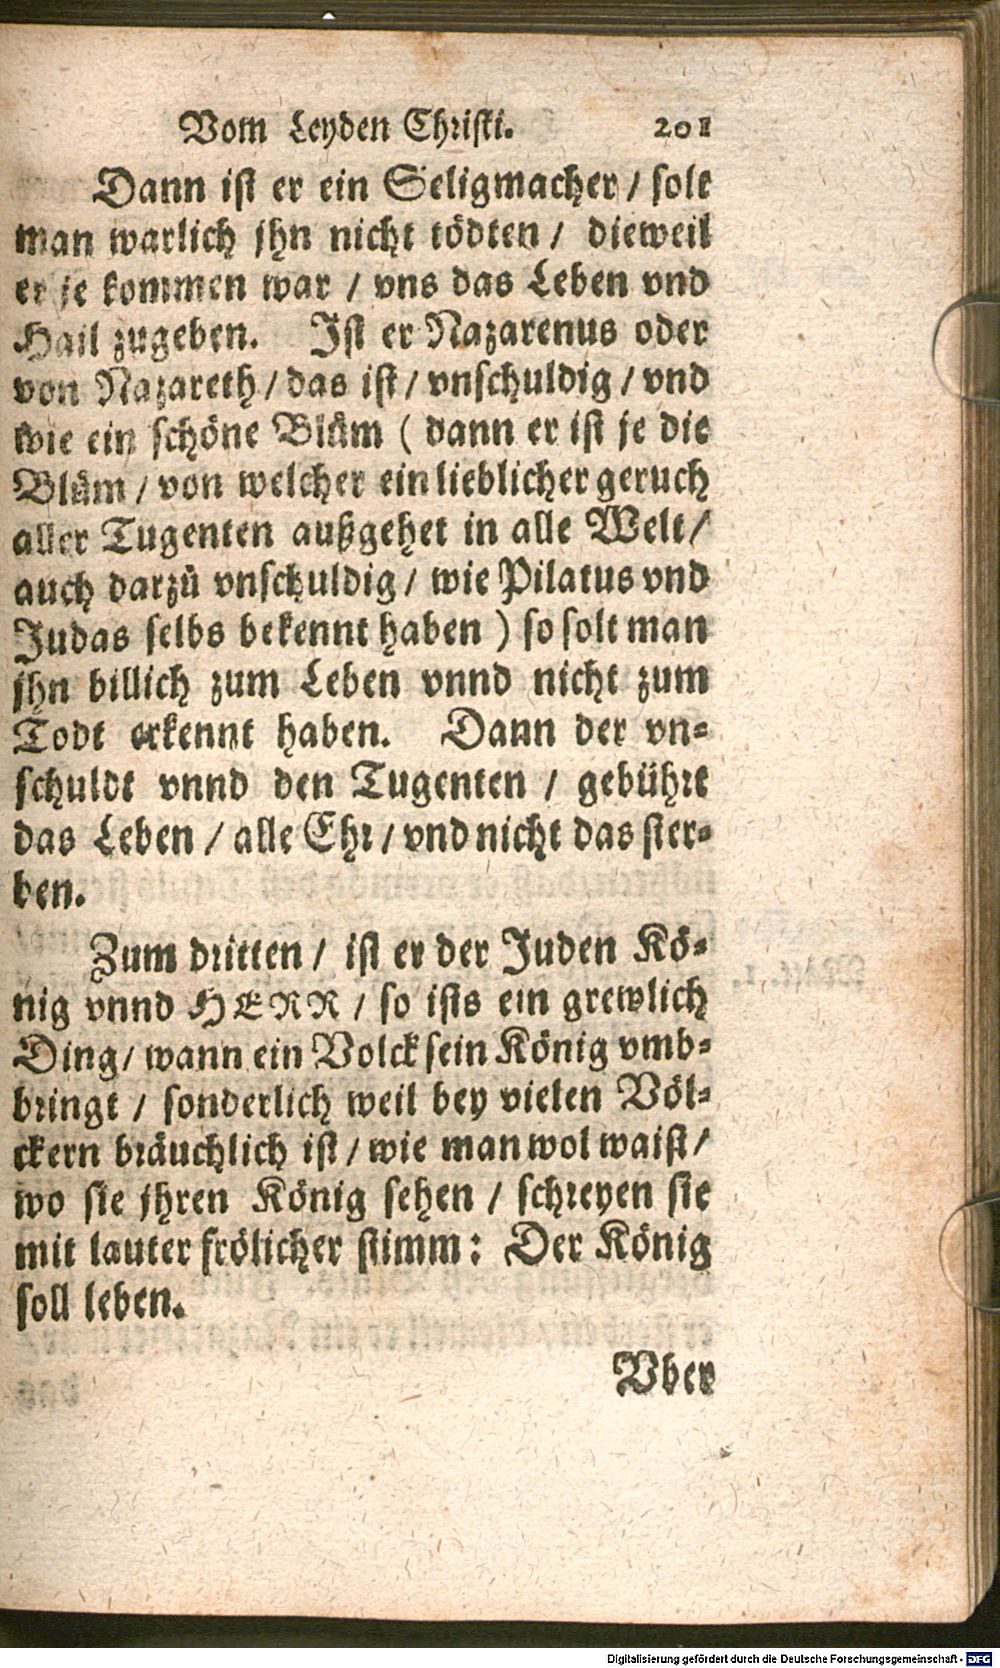 Vom Leyden Christi. 201
Dann ist er ein Seligmacher / solt
man warlich jhn nicht tödten / dieweil
er je kommen war / vns das Leben vnd
Hail zugeben. Ist er Nazarenus oder
von Nazareth / das ist / vnschuldig / vnd
wie ein schöne Blům ( dann er ist je die
Blům / von welcher ein lieblicher geruch
aller Tugenten außgehet in alle Welt /
auch darzů vnschuldig / wie Pilatus vnd
Judas selbs bekennt haben ) so solt man
jhn billich zum Leben vnnd nicht zum
Todt erkennt haben. Dann der vn-
schuldt vnnd den Tugenten / gebührt
das Leben / alle Ehr / vnd nicht das ster-
ben.
Zum dritten / ist er der Juden Kö-
nig vnnd HERR / so ists ein grewlich
Ding / wann ein Volck sein König vmb-
bringt / sonderlich weil bey vielen Völ-
ckern bräuchlich ist / wie man wol waist /
wo sie jhren König sehen / schreyen sie
mit lauter frölicher stimm: Der König
soll leben.
Vber
Digitalisierung gefördert durch die Deutsche Forschungsgemeinschaft - DFG